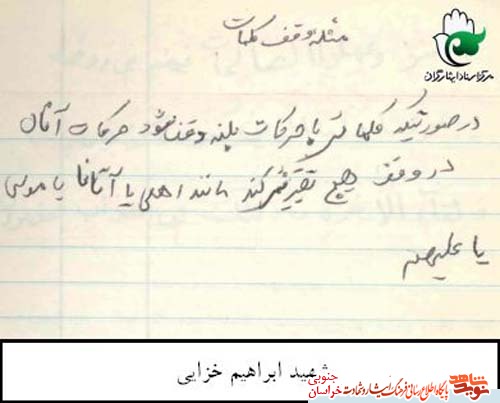 مرکز اسناد ایثارگران
مثله وقف کلمات
در صورتیکه کلماتی با حرکات بلند وقف شود حرکات آنان
در وقف هیچ تغییر نمی‌کند مانند اهلی یا آتانا یا موسی
یا علیهن
شهید ابراهیم خزایی
نوید شاهد
پایگاه اطلاع رسانی فرهنگ ایثار و شهادت خراسان جنوبی